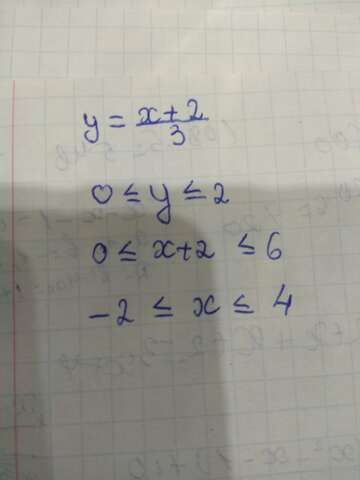 y = x+2/3
0 ≤ y ≤ 2
0 ≤ x+2 ≤ 6
-2 ≤ x ≤ 4